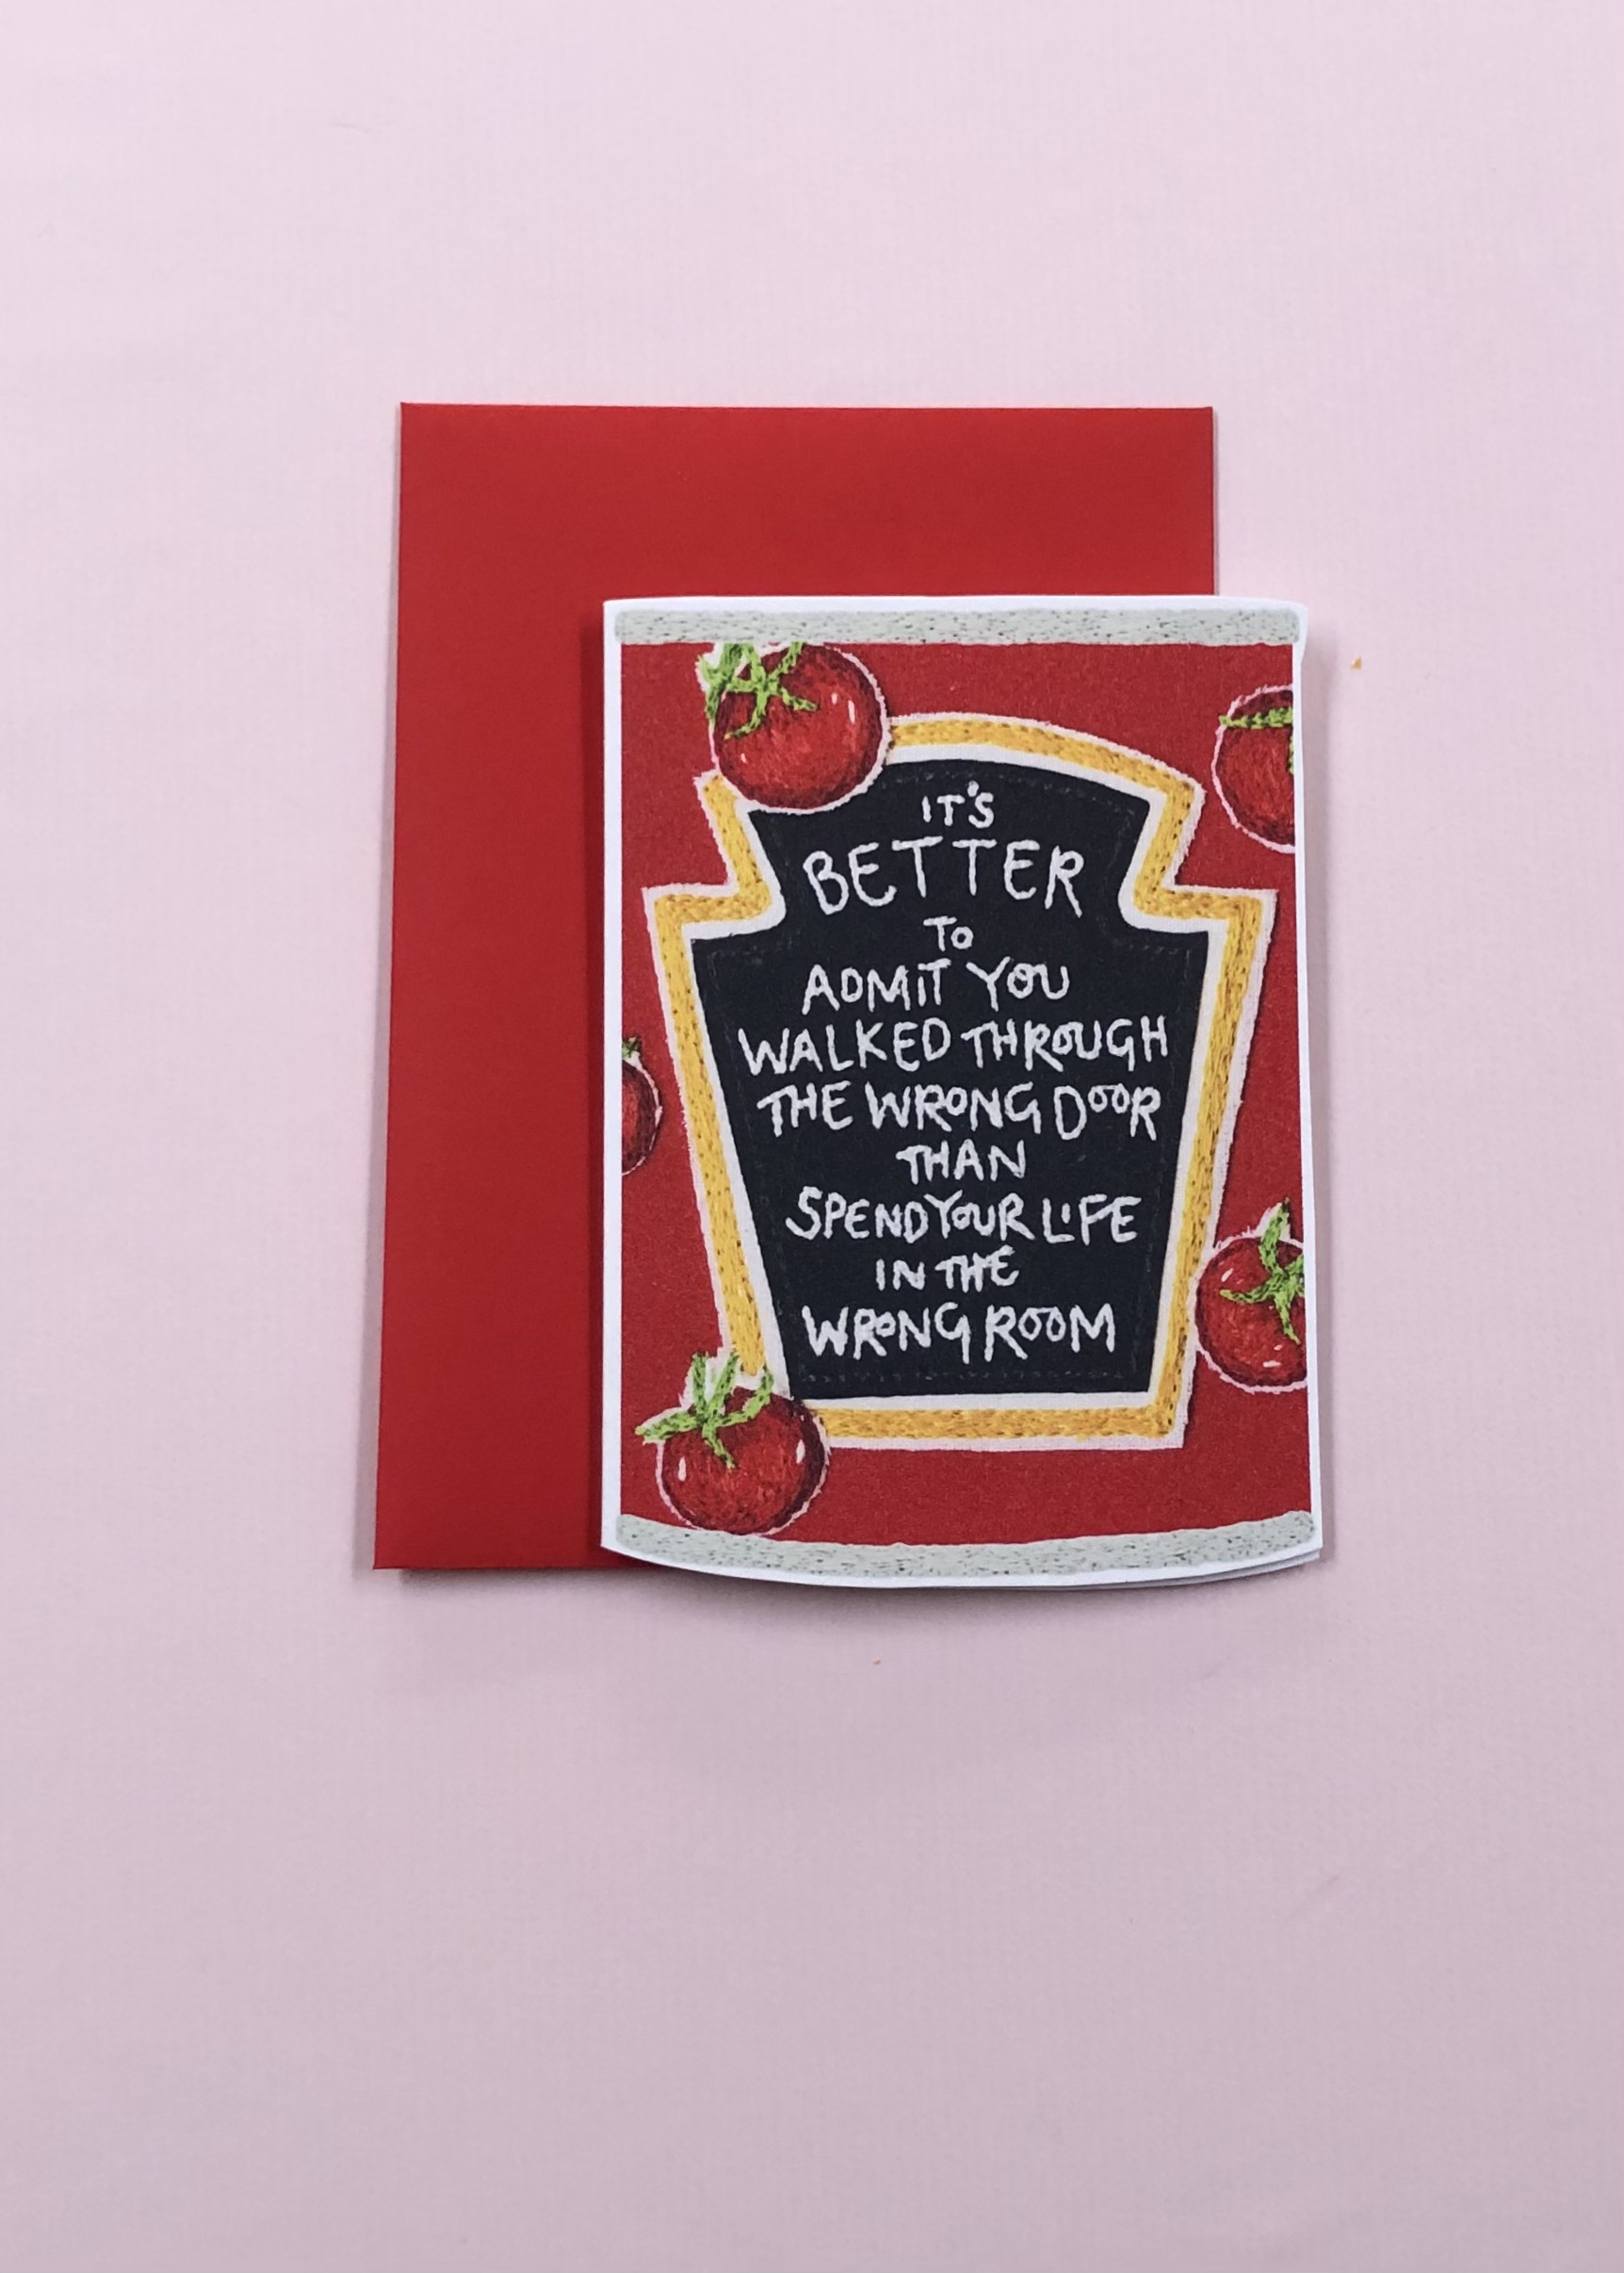 IT'S
BETTER
TO
ADMIT YOU
WALKED THROUGH
THE WRONG DOOR
THAN
SPEND YOUR LIFE
IN THE
WRONG ROOM